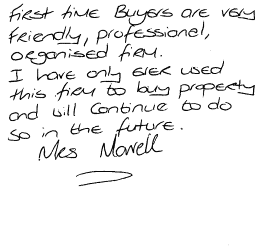 First time Buyers are very
friendly, professional,
organised firm.
I have only ever used
this firm to buy property
and will continue to do
so in the future.
Mrs Morrell